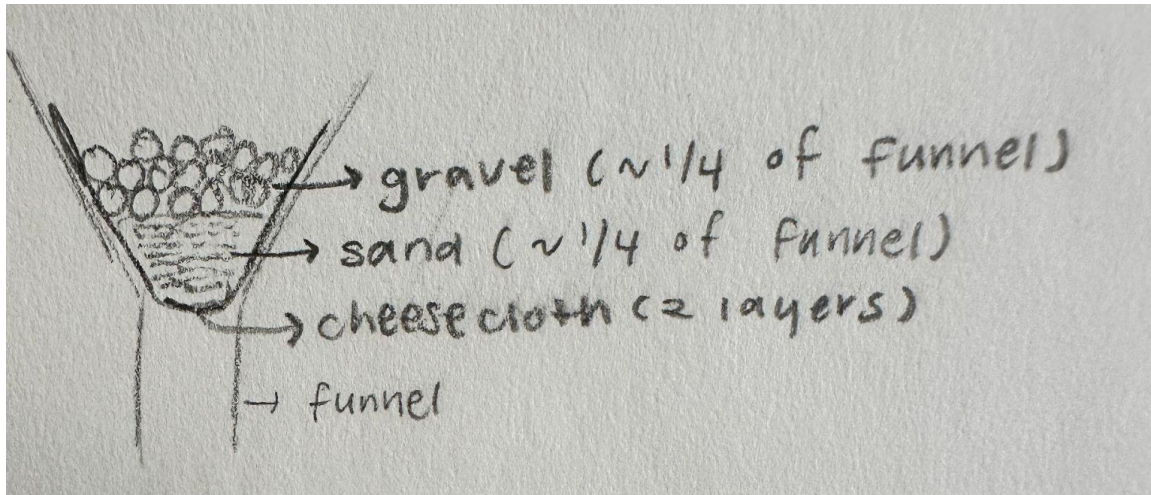 gravel (~1/4 of funnel)
sand (~1/4 of funnel)
cheesecloth (2 layers)
funnel